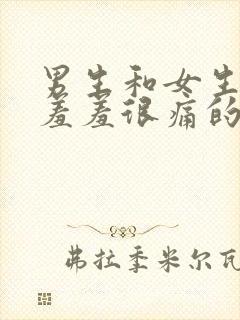 男生和女生
羞羞很痛的
弗拉季米尔瓦